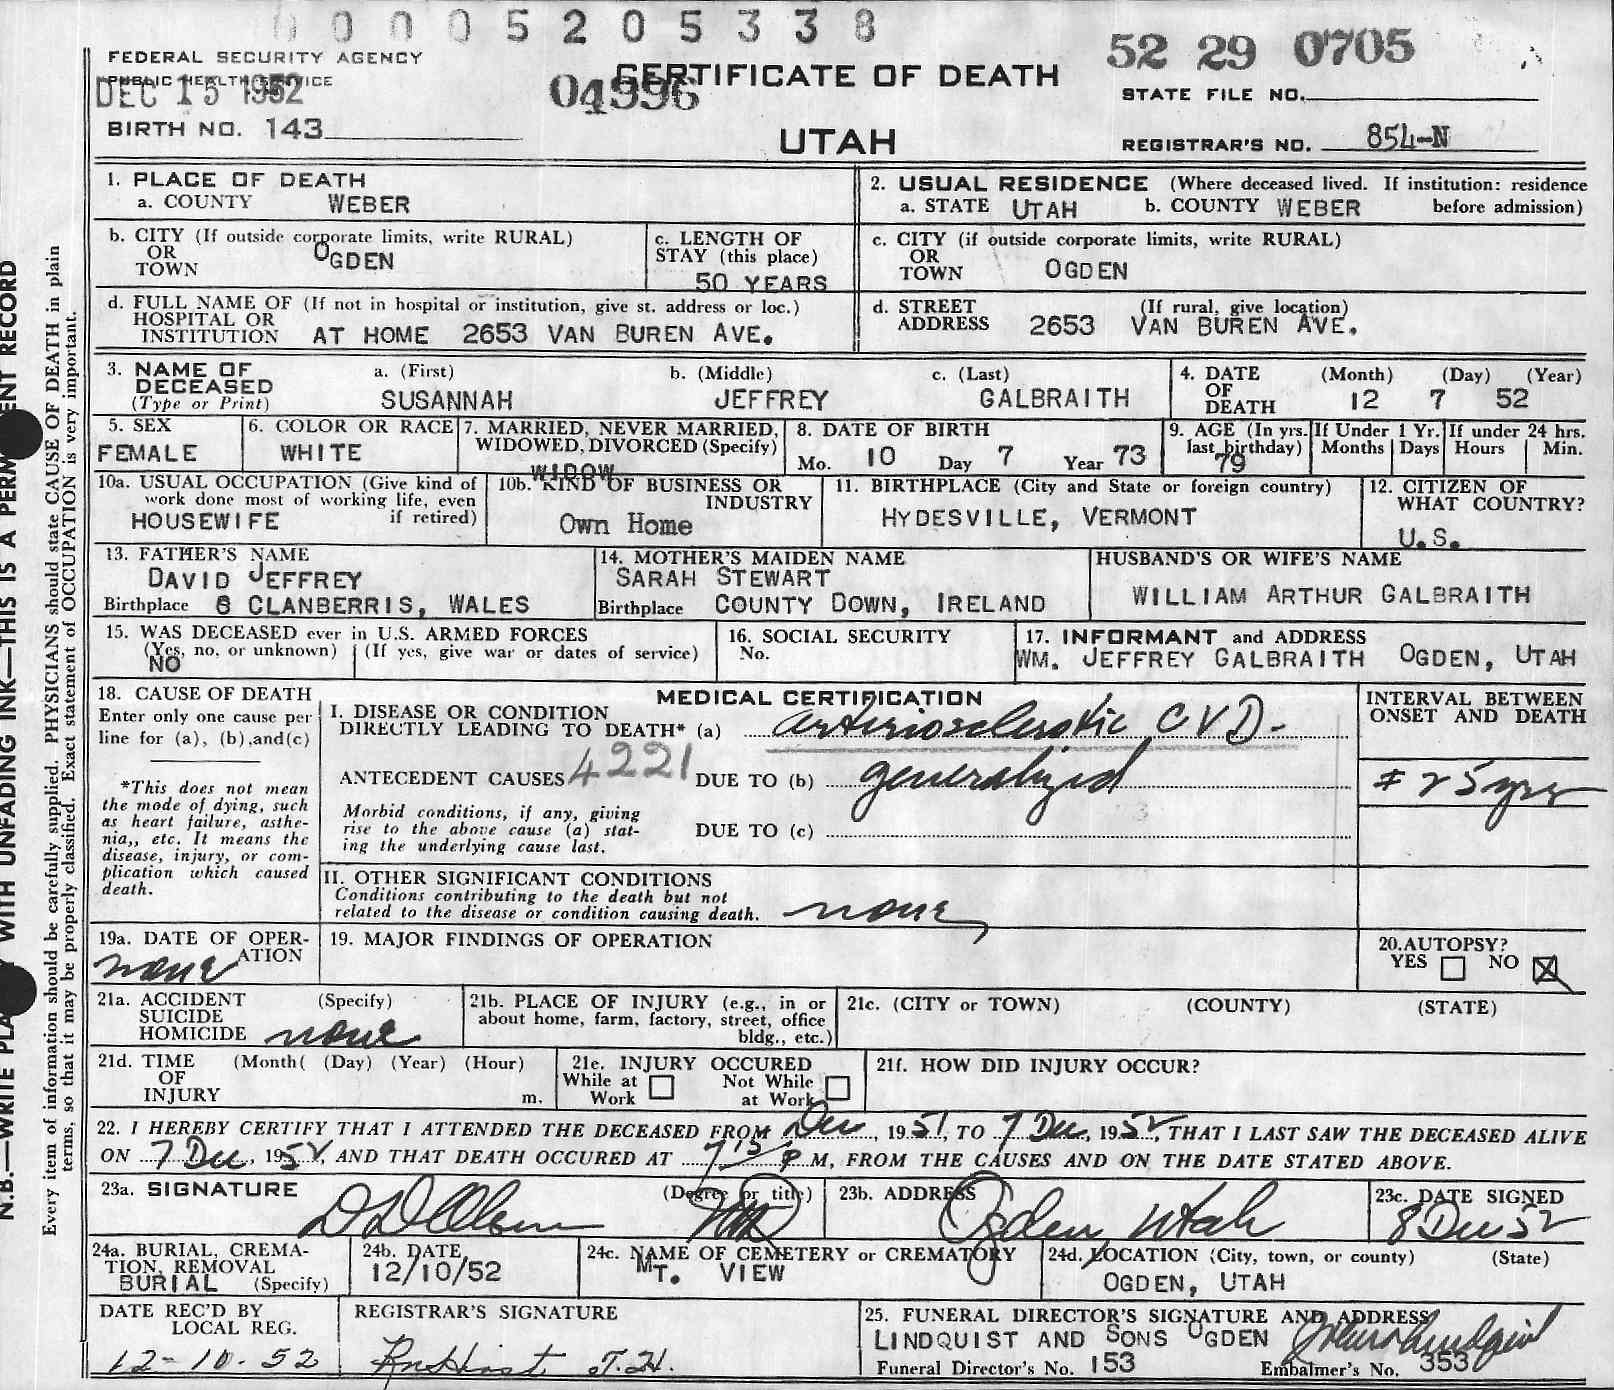 0 0 0 0 5 2 0 5 3 3 8
FEDERAL SECURITY AGENCY
PUBLIC HEALTH SERVICE
DEC 15 1952
BIRTH NO. 143
04996
CERTIFICATE OF DEATH
UTAH
52 29 0705
STATE FILE NO.
REGISTRAR'S NO. 854-N
N.B.—WRITE PLA WITH UNFADING INK—THIS IS A PERM ENT RECORD
Every item of information should be carefully supplied. PHYSICIANS should state CAUSE OF DEATH in plain
terms, so that it may be properly classified. Exact statement of OCCUPATION is very important.
1. PLACE OF DEATH
a. COUNTY WEBER
2. USUAL RESIDENCE (Where deceased lived. If institution: residence
before admission)
a. STATE UTAH b. COUNTY WEBER
b. CITY (If outside corporate limits, write RURAL)
OR
TOWN OGDEN
c. LENGTH OF
STAY (this place)
50 YEARS
c. CITY (if outside corporate limits, write RURAL)
OR
TOWN OGDEN
d. FULL NAME OF (If not in hospital or institution, give st. address or loc.)
HOSPITAL OR
INSTITUTION AT HOME 2653 VAN BUREN AVE.
d. STREET (If rural, give location)
ADDRESS 2653 VAN BUREN AVE.
3. NAME OF a. (First) b. (Middle) c. (Last)
DECEASED
(Type or Print) SUSANNAH JEFFREY GALBRAITH
4. DATE (Month) (Day) (Year)
OF
DEATH 12 7 52
5. SEX
FEMALE
6. COLOR OR RACE
WHITE
7. MARRIED, NEVER MARRIED,
WIDOWED, DIVORCED (Specify)
WIDOW
8. DATE OF BIRTH
Mo. 10 Day 7 Year 73
9. AGE (In yrs.
last birthday)
79
If Under 1 Yr.
Months Days
If under 24 hrs.
Hours Min.
10a. USUAL OCCUPATION (Give kind of
work done most of working life, even
if retired)
HOUSEWIFE
10b. KIND OF BUSINESS OR
INDUSTRY
Own Home
11. BIRTHPLACE (City and State or foreign country)
HYDESVILLE, VERMONT
12. CITIZEN OF
WHAT COUNTRY?
U.S.
13. FATHER'S NAME
DAVID JEFFREY
Birthplace CLANBERRIS, WALES
14. MOTHER'S MAIDEN NAME
SARAH STEWART
Birthplace COUNTY DOWN, IRELAND
HUSBAND'S OR WIFE'S NAME
WILLIAM ARTHUR GALBRAITH
15. WAS DECEASED ever in U.S. ARMED FORCES
(Yes, no, or unknown) (If yes, give war or dates of service)
NO
16. SOCIAL SECURITY
No.
17. INFORMANT and ADDRESS
WM. JEFFREY GALBRAITH OGDEN, UTAH
18. CAUSE OF DEATH
Enter only one cause per
line for (a), (b),and(c)
*This does not mean
the mode of dying, such
as heart failure, asthe-
nia,, etc. It means the
disease, injury, or com-
plication which caused
death.
MEDICAL CERTIFICATION
I. DISEASE OR CONDITION
DIRECTLY LEADING TO DEATH* (a) arteriosclerotic C V D.
ANTECEDENT CAUSES 4221 DUE TO (b) generalyzed
Morbid conditions, if any, giving
rise to the above cause (a) stat-
ing the underlying cause last.
DUE TO (c)
INTERVAL BETWEEN
ONSET AND DEATH
± 25 yrs
II. OTHER SIGNIFICANT CONDITIONS
Conditions contributing to the death but not
related to the disease or condition causing death. none
19a. DATE OF OPER-
ATION
none
19. MAJOR FINDINGS OF OPERATION
20.AUTOPSY?
YES NO
21a. ACCIDENT (Specify)
SUICIDE
HOMICIDE none
21b. PLACE OF INJURY (e.g., in or
about home, farm, factory, street, office
bldg., etc.)
21c. (CITY or TOWN) (COUNTY) (STATE)
21d. TIME (Month( (Day) (Year) (Hour)
OF
INJURY m.
21e. INJURY OCCURED
While at Not While
Work at Work
21f. HOW DID INJURY OCCUR?
22. I HEREBY CERTIFY THAT I ATTENDED THE DECEASED FROM Dec, 1951, TO 7 Dec, 1952, THAT I LAST SAW THE DECEASED ALIVE
ON 7 Dec, 1952, AND THAT DEATH OCCURED AT 7 15 P M, FROM THE CAUSES AND ON THE DATE STATED ABOVE.
23a. SIGNATURE (Degree or title)
D D Olsen MD
23b. ADDRESS
Ogden Utah
23c. DATE SIGNED
8 Dec 52
24a. BURIAL, CREMA-
TION, REMOVAL
BURIAL (Specify)
24b. DATE
12/10/52
24c. NAME OF CEMETERY or CREMATORY
MT. VIEW
24d. LOCATION (City, town, or county) (State)
OGDEN, UTAH
DATE REC'D BY
LOCAL REG.
12-10-52
REGISTRAR'S SIGNATURE
25. FUNERAL DIRECTOR'S SIGNATURE AND ADDRESS
LINDQUIST AND SONS OGDEN
Funeral Director's No. 153 Embalmer's No. 353